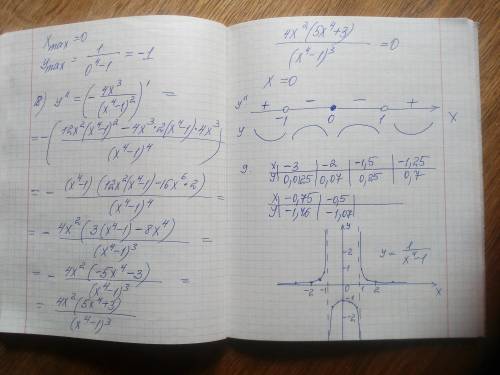 x max = 0
y max = 1/(0⁴-1) = -1
8) y'' = (- 4x³/(x⁴-1)²)' =
= -(12x²(x⁴-1)² - 4x³·2(x⁴-1)·4x³)/(x⁴-1)⁴ =
= - (x⁴-1)(12x²(x⁴-1) - 16x⁶·2)/(x⁴-1)⁴ =
= - 4x²(3(x⁴-1) - 8x⁴)/(x⁴-1)³ =
= - 4x²(-5x⁴-3)/(x⁴-1)³ =
= 4x²(5x⁴+3)/(x⁴-1)³
4x²(5x⁴+3)/(x⁴-1)³ = 0
x = 0
y'' + - - +
-1 0 1 x
y
9. x | -3 | -2 | -1,5 | -1,25
y | 0,0125 | 0,07 | 0,25 | 0,7
x | -0,75 | -0,5
y | -1,46 | -1,07
y
2
1
y = 1/(x⁴-1)
-2 -1 0 1 2 x
-2